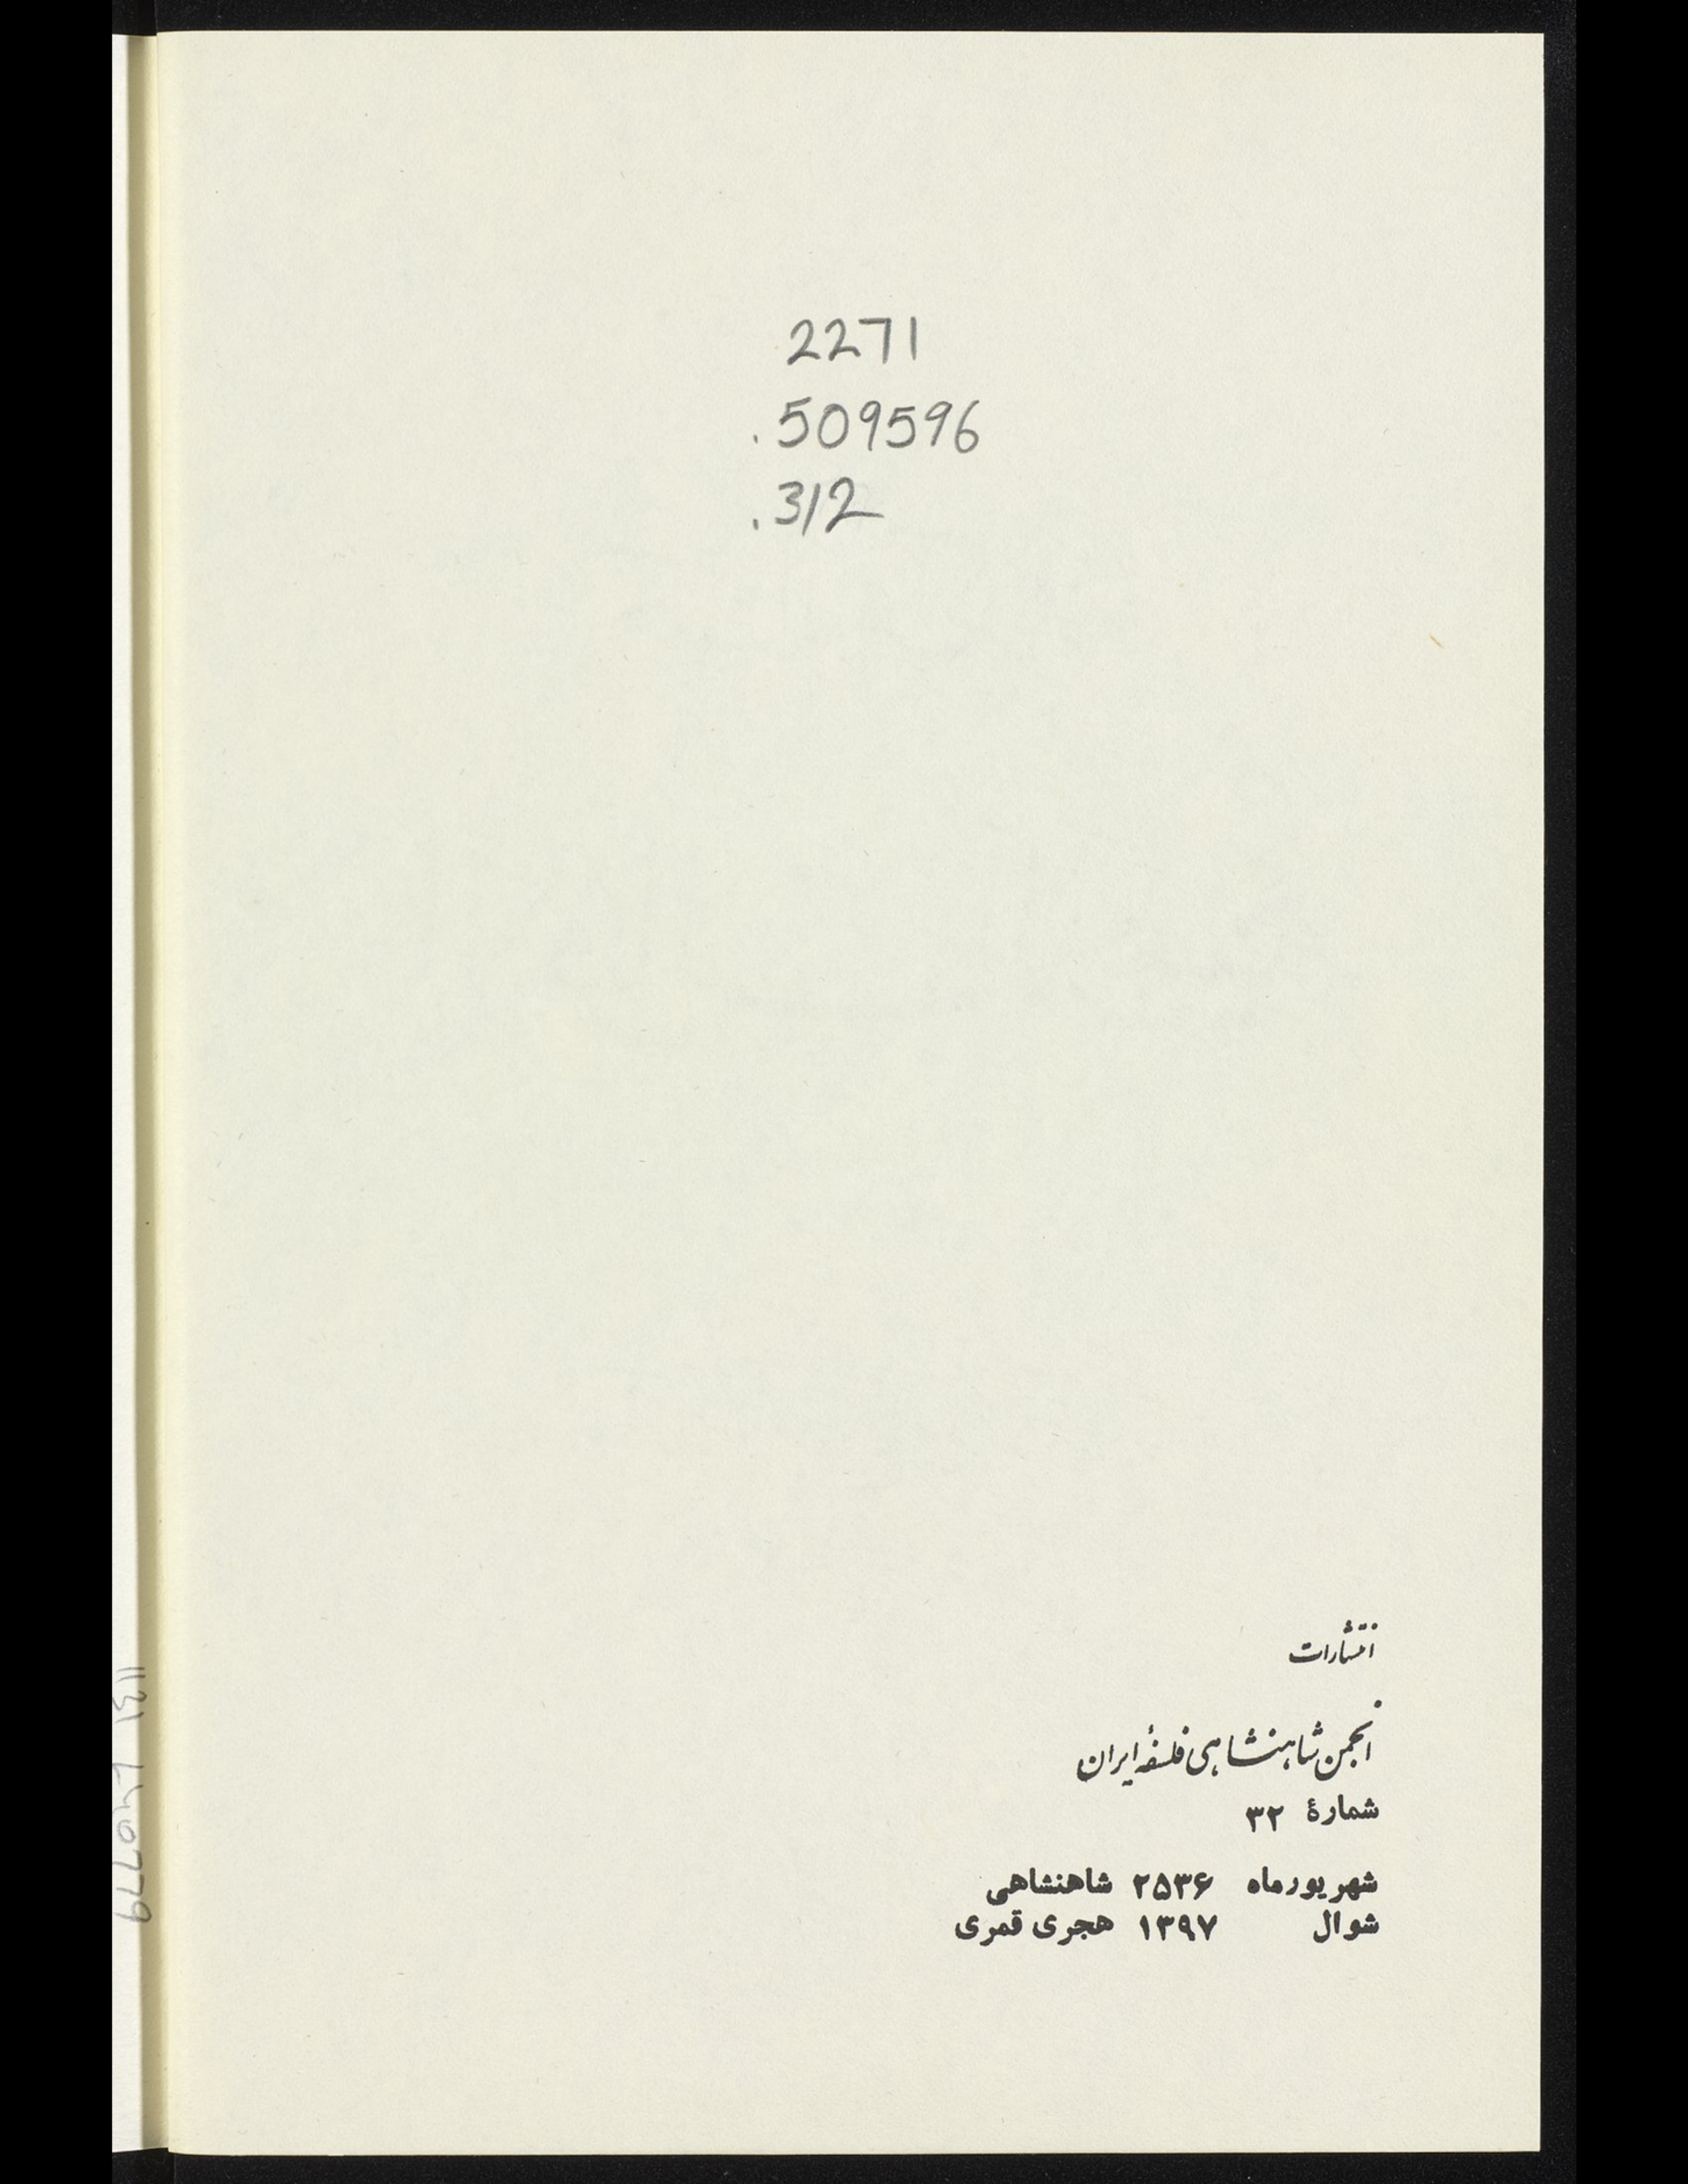 2271
.509596
.312
انتشارات
انجمن شاهنشاهی فلسفهٔ ایران
شمارهٔ ۳۲
شهریورماه ۲۵۳۶ شاهنشاهی
شوال ۱۳۹۷ هجری قمری